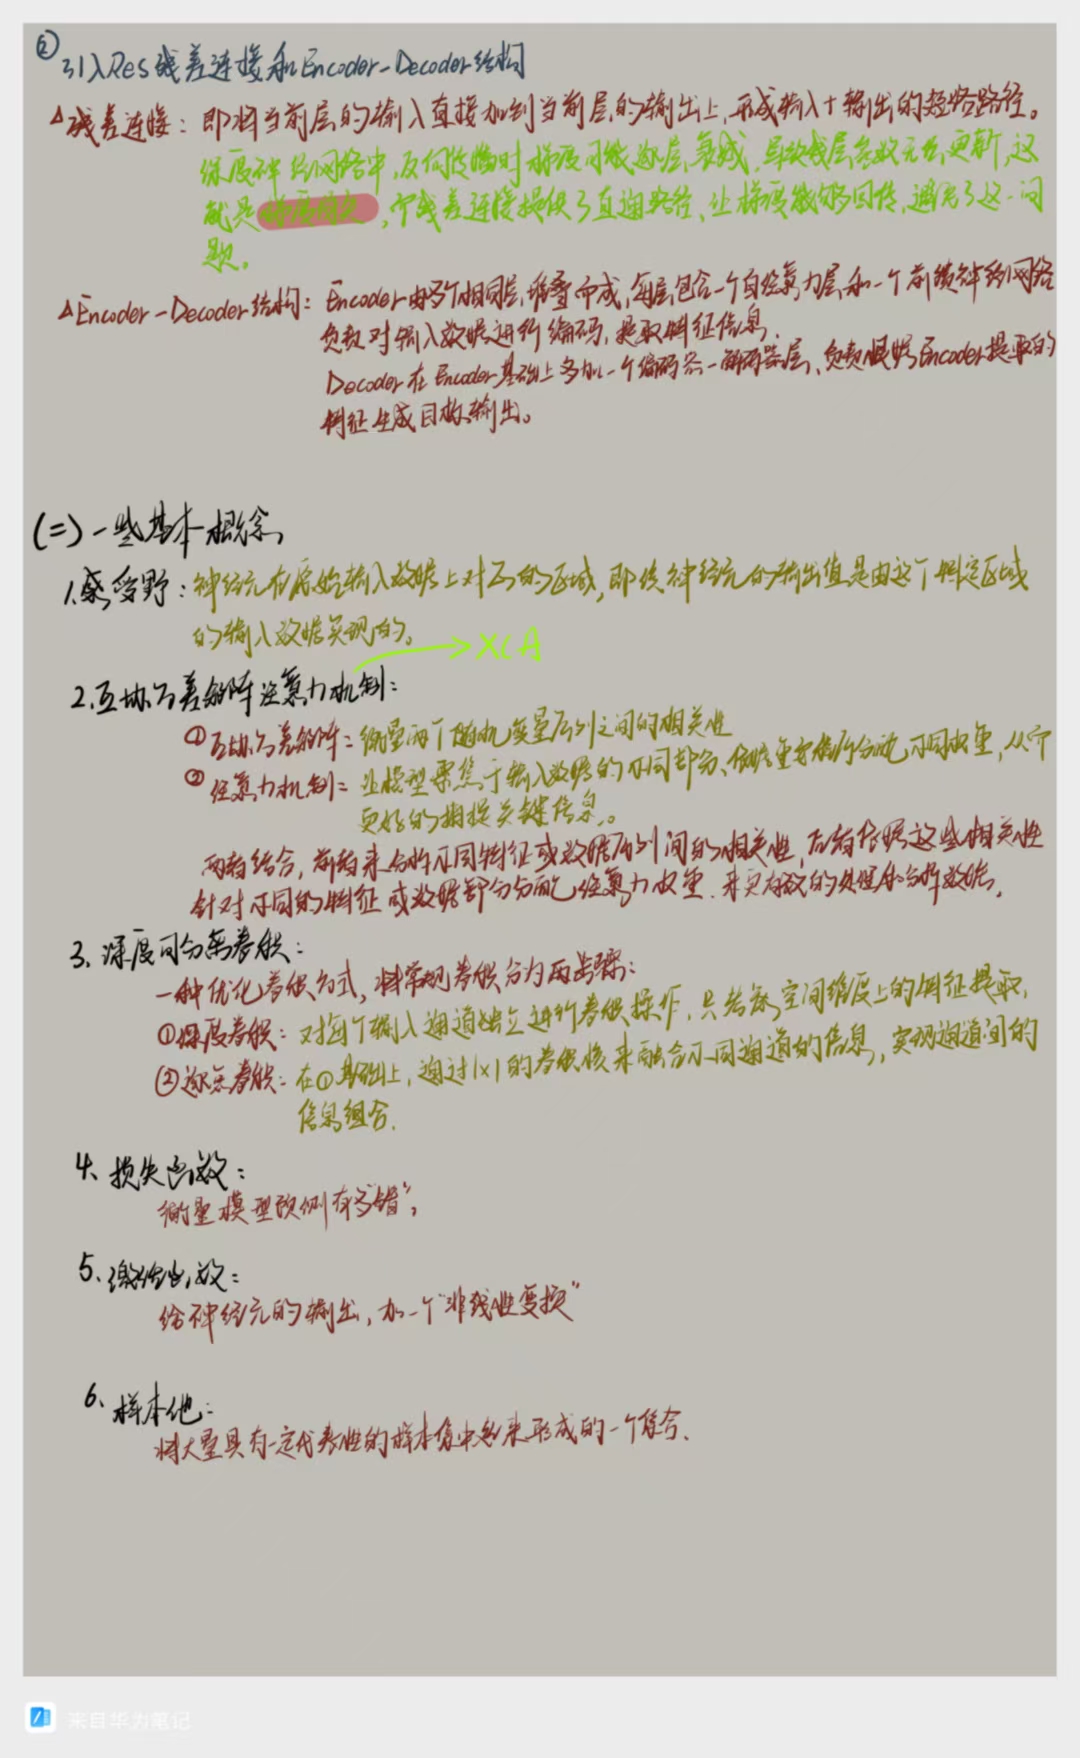 ② 引入Res残差连接和Encoder-Decoder结构
△残差连接：即将当前层的输入直接加到当前层的输出上，形成输入+输出的短路路径。
深度神经网络中，反向传播时梯度可能逐层衰减，导致浅层参数无法更新，这
就是梯度消失，而残差连接提供了直通路径，让梯度能够回传，避免了这一问
题。
△Encoder-Decoder结构：Encoder由多个相同层堆叠而成，每层包含一个自注意力层和一个前馈神经网络
负责对输入数据进行编码，提取特征信息.
Decoder在Encoder基础上多加一个编码器-解码器层、负责根据Encoder提取的
特征生成目标输出。
(二)一些基本概念
1.感受野：神经元在原始输入数据上对应的区域，即该神经元的输出值是由这个特定区域
的输入数据实现的。
→XCA
2.互协方差矩阵注意力机制：
①互协方差矩阵：衡量两个随机变量序列之间的相关性
②注意力机制：让模型聚焦于输入数据的不同部分、依据重要性分配不同权重，从而
更好的捕捉关键信息。
两者结合，前者来分析不同特征或数据序列间的相关性，后者依据这些相关性
针对不同的特征或数据部分分配注意力权重.来更有效的处理和分析数据.
3.深度可分离卷积：
一种优化卷积方式，将常规卷积分为两步骤：
①深度卷积：对每个输入通道独立进行卷积操作，只考虑空间维度上的特征提取.
②逐点卷积：在①基础上，通过1×1的卷积核来融合不同通道的信息，实现通道间的
信息组合.
4、损失函数：
衡量模型预测有多“错”；
5.激活函数：
给神经元的输出，加一个“非线性变换”
6、样本池：
将大量具有一定代表性的样本集中起来形成的一个集合、
来自华为笔记